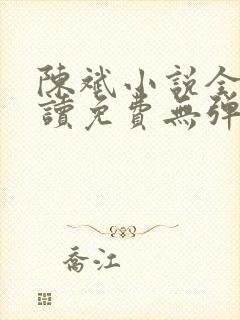 陳斌小說全
讀免費無彈
喬江